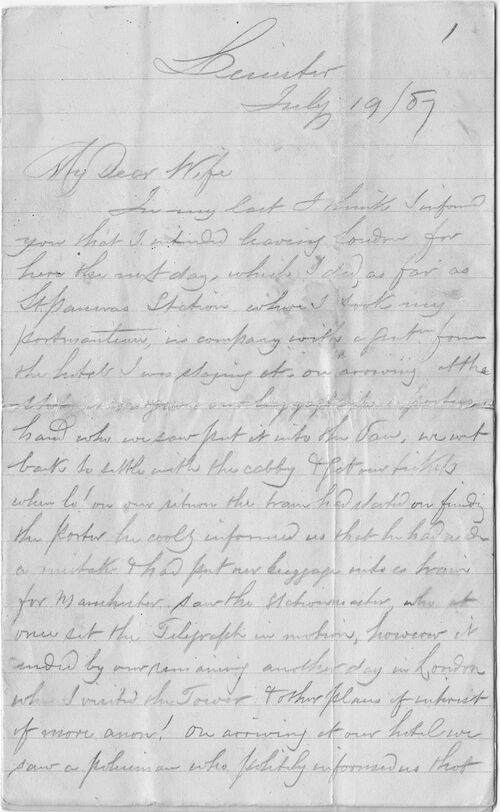 1
Leinster
July 19/87
My Dear Wife
In my last I think I informd
you that I intended leaving London for
here the next day, which I did, as far as
St. Pancras Station where I took my
portmanteau, in company with a gentn from
the hotel I was staying at. on arriving at the
station we gave our luggage to a porter in
hand who we saw put it into the Van, we wnt
back to settle with the cabby & get our tickets
when lo! on our return the train had started on findig
the Porter he cooly informed us that he had made
a mistake & had put our luggage into a train
for Manchester saw the stationmaster, who at
once set the Telegraph in motion, however it
ended by our remaining another day in London
when I visited the Tower & other places of interest
of more anon! On arriving at our hotel we
saw a policeman who politely informed us that